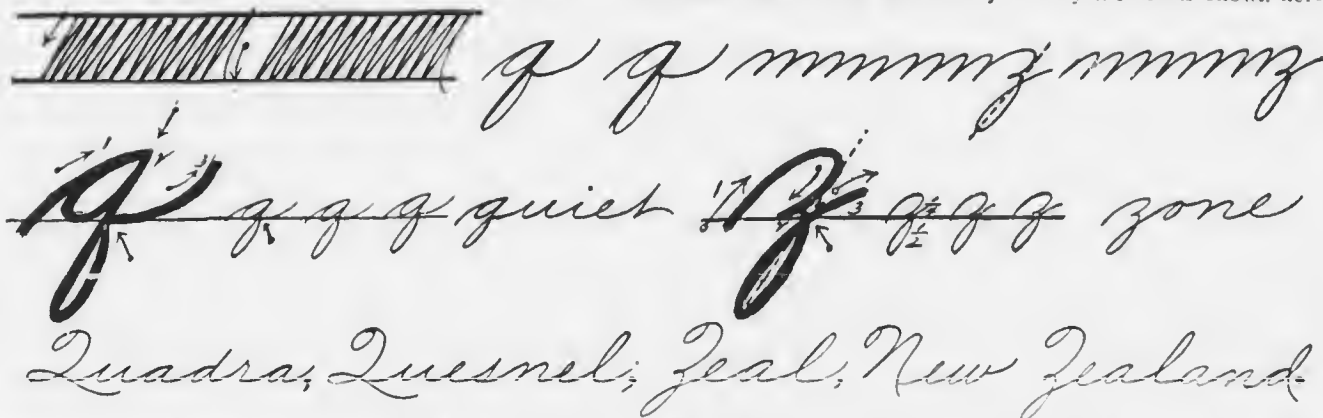 shown here
q q mmmmmz mmmmz
q q q q quiet z z z z zone
Quadra, Quesnel, Zeal, New Zealand.